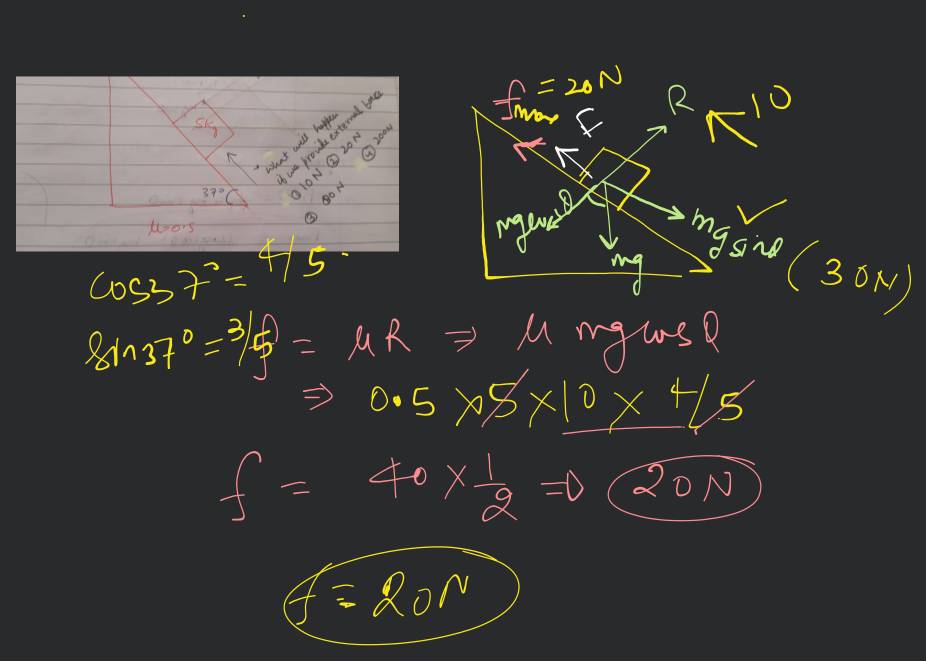 5kg
37°
μ=0.5
what will happen
if we provide external force
① 10N ② 20N
③ 80N ④ 200N
fmax = 20N
F
R
10
mgcosθ
mg
mgsinθ
(30N)
cos37° = 4/5
sin37° = 3/5
f = μR ⇒ μ mgcosθ
⇒ 0.5 × 5 × 10 × 4/5
f = 40 × 1/2 ⇒ 20N
f = 20N